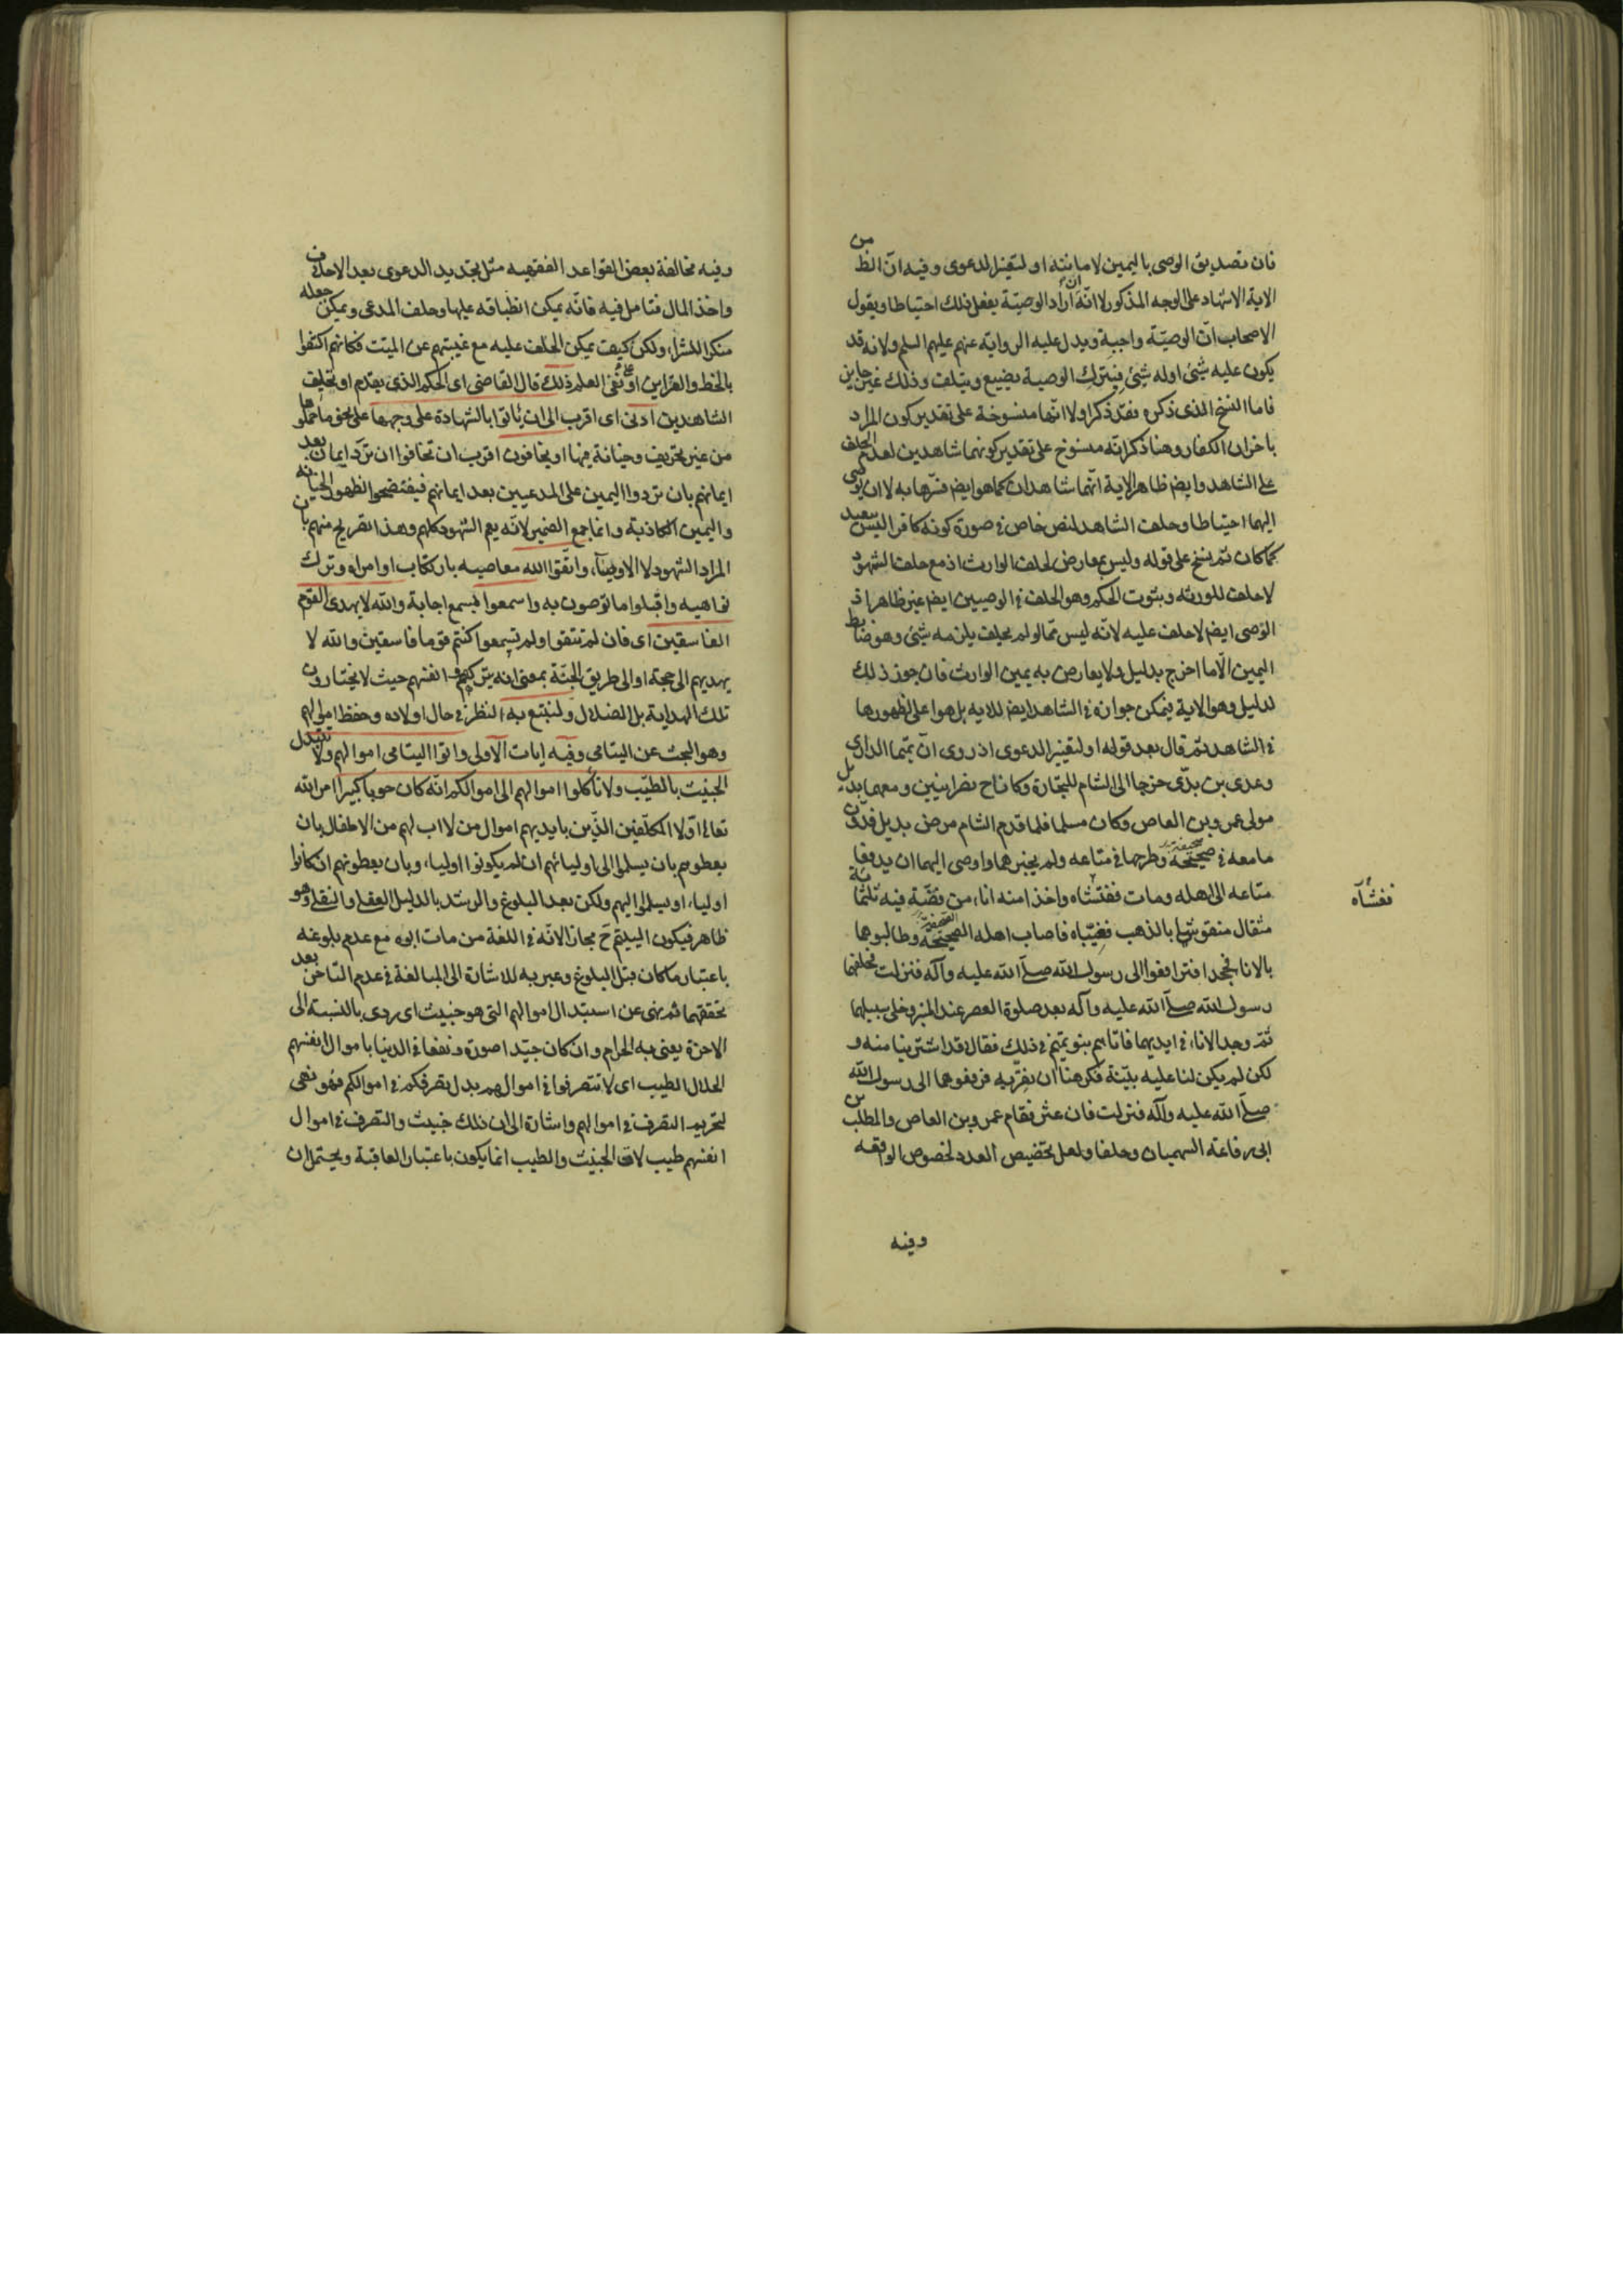 فان تصديق الوصى باليمين لامانته او لتغير الدعوى وفيه ان الظ من
الاية الاشهاد على الوجه المذكور لا انه ان اراد الوصية يفعل ذلك احتياطا ويقول
الاصحاب ان الوصية واجبة ويدل عليه الرواية عنهم عليهم السلم ولانه قد
يكون عليه شئ اوله شئ فيترك الوصية يضيع ويتلف وذلك غير جايز
فاما النسخ الذى ذكره فقد ذكر اولا انها منسوخة على تقدير كون المراد
باخران الكفار وهنا ذكر انه منسوخ على تقدير كونهما شاهدين لعدم الحلف
على الشاهد وايضم ظاهر الاية انهما شاهدان كما هو ايضم فسرها به لا ان يوصى
اليهما احتياطا وحلف الشاهد لنص خاص فى صورة كونه كافرا ليس ببعيد
كما كان ثم نسخ على قوله وليس بمعارض لحلف الوارث اذ مع حلف الشهود
لا حلف للورثه وثبوت الحكم وهو الحلف فى الوصيين ايضم غير ظاهر اذ
الوصى ايضم لا حلف عليه لانه ليس مما لو لم يحلف يلزمه شئ وهو ضابط
اليمين الا ما اخرج بدليل ولا يعارض به يمين الوارث فان جوز ذلك
لدليل وهو الاية فيمكن جوازه فى الشاهد ايضم للاية بل هو اعلى لظهورها
فى الشاهد ثم قال بعد قوله او لتغير الدعوى اذ روى ان تميما الدارى
وعدى بن بدى خرجا الى الشام للتجارة وكانا ح نصرانيين ومعهما بديل
مولى عمرو بن العاص وكان مسلما فلما قدم الشام مرض بديل فدون
ما معه فى صحيفة وطرحها فى متاعه ولم يخبرهما واوصى اليهما ان يدفعا
متاعه الى اهله ومات ففتشاه واخذا منه اناء من فضة فيه ثلثمائة
مثقال منقوشا بالذهب فغيباه فاصاب اهله الصحيفة وطالبوهما
بالاناء فجحدا فترافعوا الى رسول الله صلى الله عليه وآله فنزلت فحلفهما
رسول الله صلى الله عليه وآله بعد صلوة العصر عند المنبر وخلى سبيلهما
ثم وجد الاناء فى ايديهما فاتاهم بنو تميم فى ذلك فقال قد اشترينا منه و
لكن لم يكن لنا عليه بينة فكرهنا ان نقر به فرفعوهما الى رسول الله
صلى الله عليه وآله فنزلت فان عثر فقام عمرو بن العاص والمطلب بن
ابى رفاعة السهميان وحلفا ولعل تخصيص العدد لخصوص الواقعه
وفيه
ففتشاه
وفيه مخالفة بعض القواعد الفقهيه مثل تجديد الدعوى بعد الاحلاف
واخذ المال فتامل فيه فانه يمكن انطباقه عليها وحلف المدعى ويمكن جعله
منكر اللشراء ولكن كيف يمكن الحلف عليه مع غيبتهم عن الميت فكانهم اكتفوا
بالخط والقراين او على نفى العلم ذلك قال القاضى اى الحكم الذى تقدم او تحليف
الشاهدين ادنى اى اقرب الى ان ياتوا بالشهادة على وجهها على نحو ما تحملوها
من غير تحريف وخيانة فيها او يخافون اقرب ان تخافوا ان ترد ايمان بعد
ايمانهم بان تردوا اليمين على المدعيين بعد ايمانهم فيفتضحوا لظهور الخيانه
واليمين الكاذبة وانما جمع الضمير لانه يعم الشهود كلهم وهذا تصريح منهم بان
المراد الشهود لا الاوصياء واتقوا الله معاصيه بارتكاب اوامره وترك
نواهيه واقبلوا ما توصون به واسمعوا بسمع اجابة والله لا يهدى القوم
الفاسقين اى فان لم تتقوا ولم تسمعوا كنتم قوما فاسقين والله لا
يهديهم الى حجة او الى طريق الجنة بمعنى انه يتركهم وانفسهم حيث لا يختارون
تلك الهداية بل الضلال ولنتبع به النظر فى حال اولاده وحفظ اموالهم
وهو البحث عن اليتامى وفيه ايات الاولى واتوا اليتامى اموالهم ولا تتبدل
الخبيث بالطيب ولا تاكلوا اموالهم الى اموالكم انه كان حوبا كبيرا امر الله
تعالى اولا المكلفين الذين بايديهم اموال من لا اب لهم من الاطفال بان
يعطوهم بان يسلموا الى اوليائهم ان لم يكونوا اولياء وبان يعطونهم ان كانوا
اولياء او يسلموا اليهم ولكن بعد البلوغ والرشد بالدليل العقلى والنقلى وهو
ظاهر فيكون اليتيم ح مجازا لانه فى اللغة من مات ابوه مع عدم بلوغه
باعتبار ما كان قبل البلوغ وعبر به للاشارة الى المبالغة فى عدم التاخر بعد
تحققهما ثم نهى عن استبدال اموالهم التى هو خبيث اى ردى بالنسبة الى
الاخرة يعنى به الحرام وان كان جيدا صورة ونفعا فى الدنيا باموال انفسهم
الحلال الطيب اى لا تتصرفوا فى اموالهم بدل تصرفكم فى اموالكم فهو نهى
لتحريم التصرف فى اموالهم واشارة الى ان ذلك خبيث والتصرف فى اموال
انفسهم طيب لان الخبيث والطيب انما يكون باعتبار العاقبة ويحتمل ان